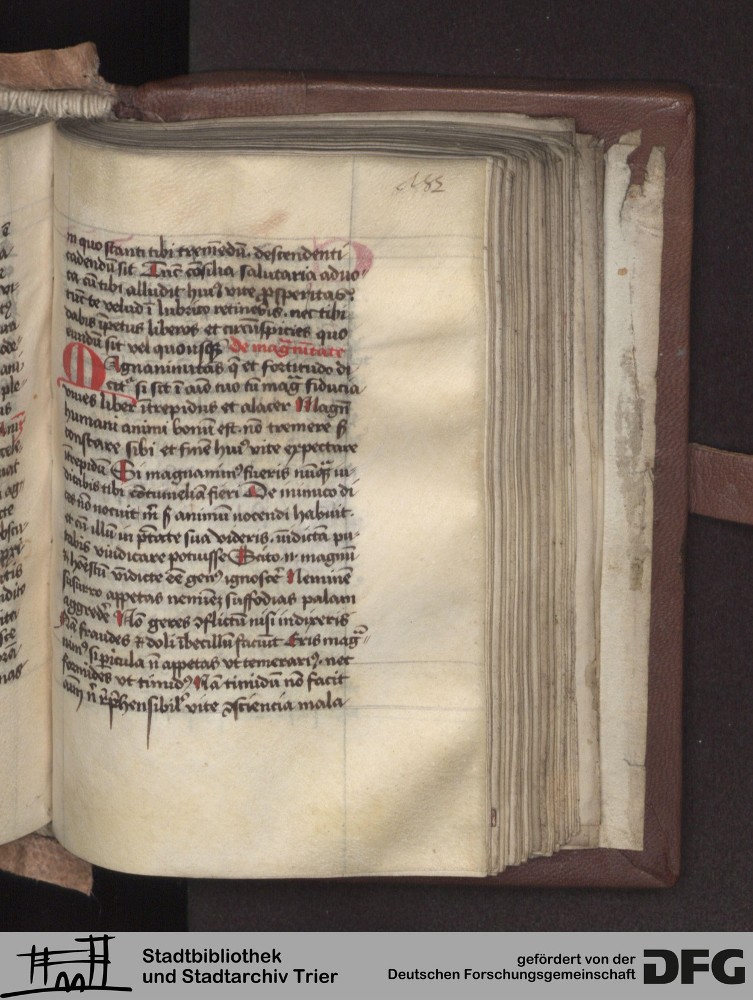 182
in quo stanti tibi tremēdū. descendenti
cadendū sit Tūc cōsilia salutaria aduo
ca cū tibi alludit huiꝰ vite ꝓsperitas
tūc te velud ī lubrico retinebis. nec tibi
dabis īpetus liberos et circūspicies quo
eundū sit vel quousqꝫ de magnitate
Magnanimitas q̄ et fortitudo di
citᷣ si sit ī aīo tuo cū mag̃ fiducia
viues liber ītrepidus et alacer Magn̄
humani animi bonū est. nō tremere sꝫ
constare sibi et finē huiꝰ vite expectare
ītrepidū Si magnanimꝰ fueris nūqᷓ iu
dicabis tibi cōtumeliā fieri De inimico di
ces nō nocuit m̄ sꝫ animū nocendi habuit.
et cū illū in ptāte sua videris. vīdictā pu
tabis vīdicare potuisse Scito n̄ magnū
⁊ honestū vīdicte eē genꝰ ignoscē Neminē
susurro appetas neminē suffodias palam
aggredē Nō geres ꝯflictū nisi indixeris
Nā fraudes ⁊ doli ībecillū faciūt Eris mag
nimꝰ si pericula n̄ appetas vt temerariꝰ. nec
formides vt timidꝰ Nā timidū nō facit
aīm n̄ rep̄hensibilꝭ vite ꝯsciencia mala
Stadtbibliothek
und Stadtarchiv Trier
gefördert von der
Deutschen Forschungsgemeinschaft
DFG